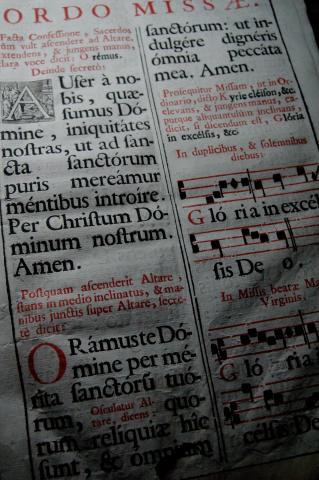 ORDO MISSÆ.
Facta Confessione, Sacerdos
tum vult ascendere ad Altare,
extendens, & jungens manus,
clara voce dicit: Orémus.
Deinde secretò:
AUfér à no-
bis, quæ-
sumus Dó-
mine, iniquitátes
nostras, ut ad san-
cta sanctórum
puris mereámur
méntibus introire.
Per Christum Dó-
minum nostrum.
Amen.
Postquam ascenderit Altare,
stans in medio inclinatus, & ma-
nibus junctis super Altare, secre-
tè dicit:
ORámus te Dó-
mine per mé-
rita sanctórũ tuó-
rum, Osculatur Al-
tare, dicens: quo-
rum reliquiæ hîc
sunt, & ómnium
sanctórum: ut in-
dulgére dignéris
ómnia peccáta
mea. Amen.
Prosequitur Missam, ut in Or-
dinario, dicto Kyrie eléison, &c.
elevans, & jungens manus, ca-
putque aliquantulum inclinans,
dicit, si dicendum est, Glória
in excélsis, &c.
In duplicibus, & solemnibus
diebus:
Gló ria in excél
sis De o.
In Missis beatæ Mar
Virginis.
Gló ria i
célsis De